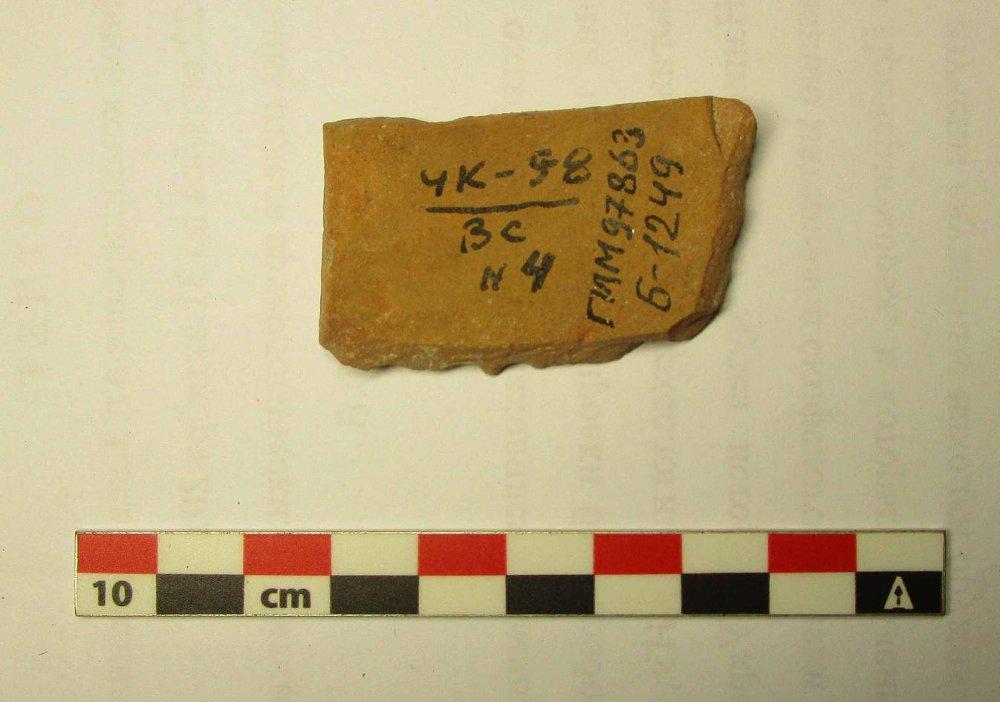 ЧК-58
ВС
н 4
ГИМ 97863
Б-1249
10 cm